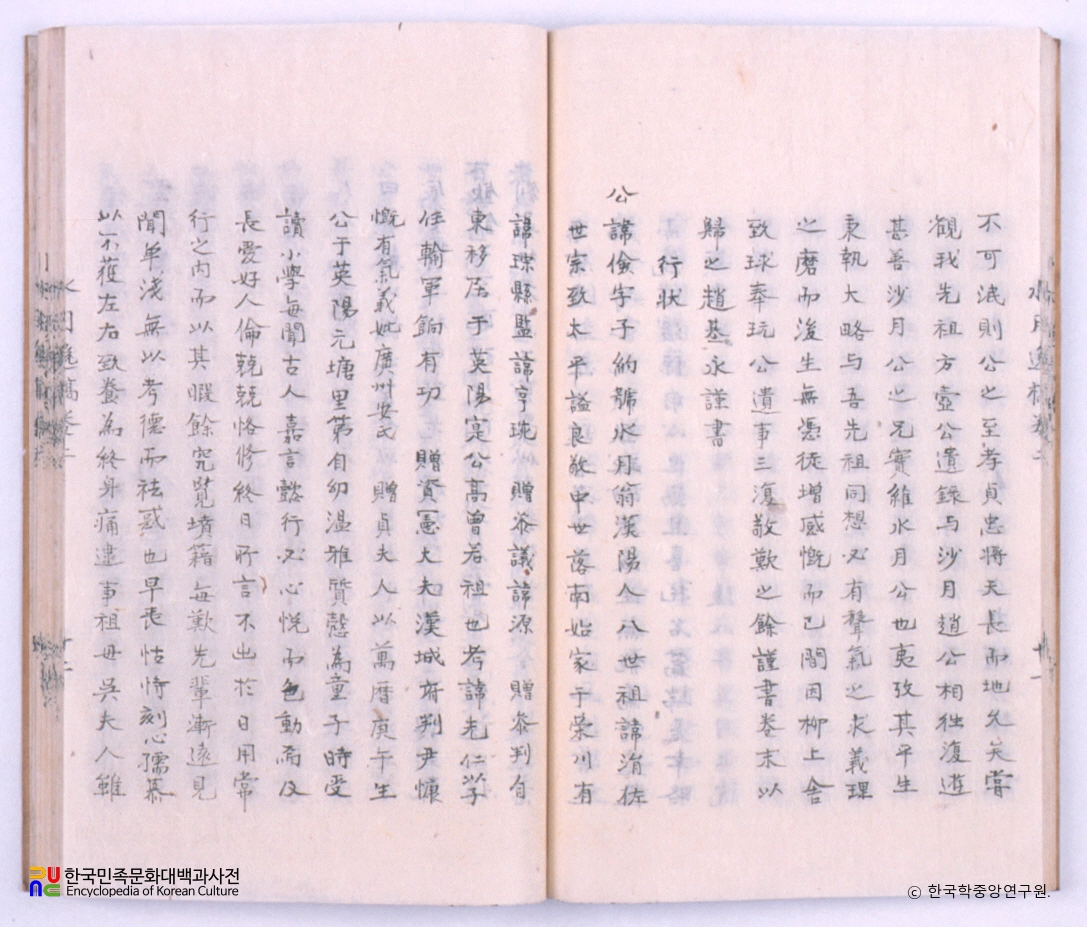 不可泯則公之至孝貞忠將天長而地久矣嘗
觀我先祖方壺公遺錄与沙月趙公相徃復遊
甚善沙月公之兄實維水月公也夷攷其平生
秉執大略与吾先祖同想必有聲氣之求義理
之磨而後生無憑徒增感慨而已間因柳上舍
致球奉玩公遺事三復敬歎之餘謹書卷末以
歸之趙基永謹書
行狀
公諱儉字子約號水月翁漢陽人八世祖諱涓佐
世宗致太平謚良敬中世落南始家于榮川有
諱琮縣監諱亨琬贈叅議諱源贈叅判自
東移居于英陽寔公高曾若祖也考諱光仁以學
任輸軍餉有功贈資憲大夫漢城府判尹慷
慨有氣義妣廣州安氏贈貞夫人以萬曆庚午生
公于英陽元塘里第自幼溫雅質慤為童子時受
讀小學每聞古人嘉言懿行必心悅而色動焉及
長愛好人倫兢兢恪修終日所言不出於日用常
行之內而以其暇餘究覽墳籍每歎先輩漸遠見
聞单淺無以考德而祛惑也早丧怙恃刻心孺慕
以不獲左右致養為終身痛逮事祖母吳夫人雖
十二
한국민족문화대백과사전
Encyclopedia of Korean Culture
ⓒ 한국학중앙연구원.